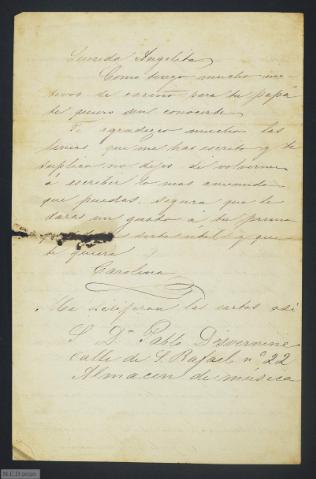 Querida Angelita
Como tengo mucho mo-
tivos de cariño para tu papá
te quiero sin conocerte.
Te agradezco mucho las
lineas que me has escrito y te
suplico no dejes de volverme
á escribir lo mas amenudo
que puedas, segura que le
daras un gusto á tu prima
y que
te quiera
Carolina
Me dirijiran las cartas asi
S. Dn. Pablo Desvernine
calle de S. Rafael nº 22
Almacen de música